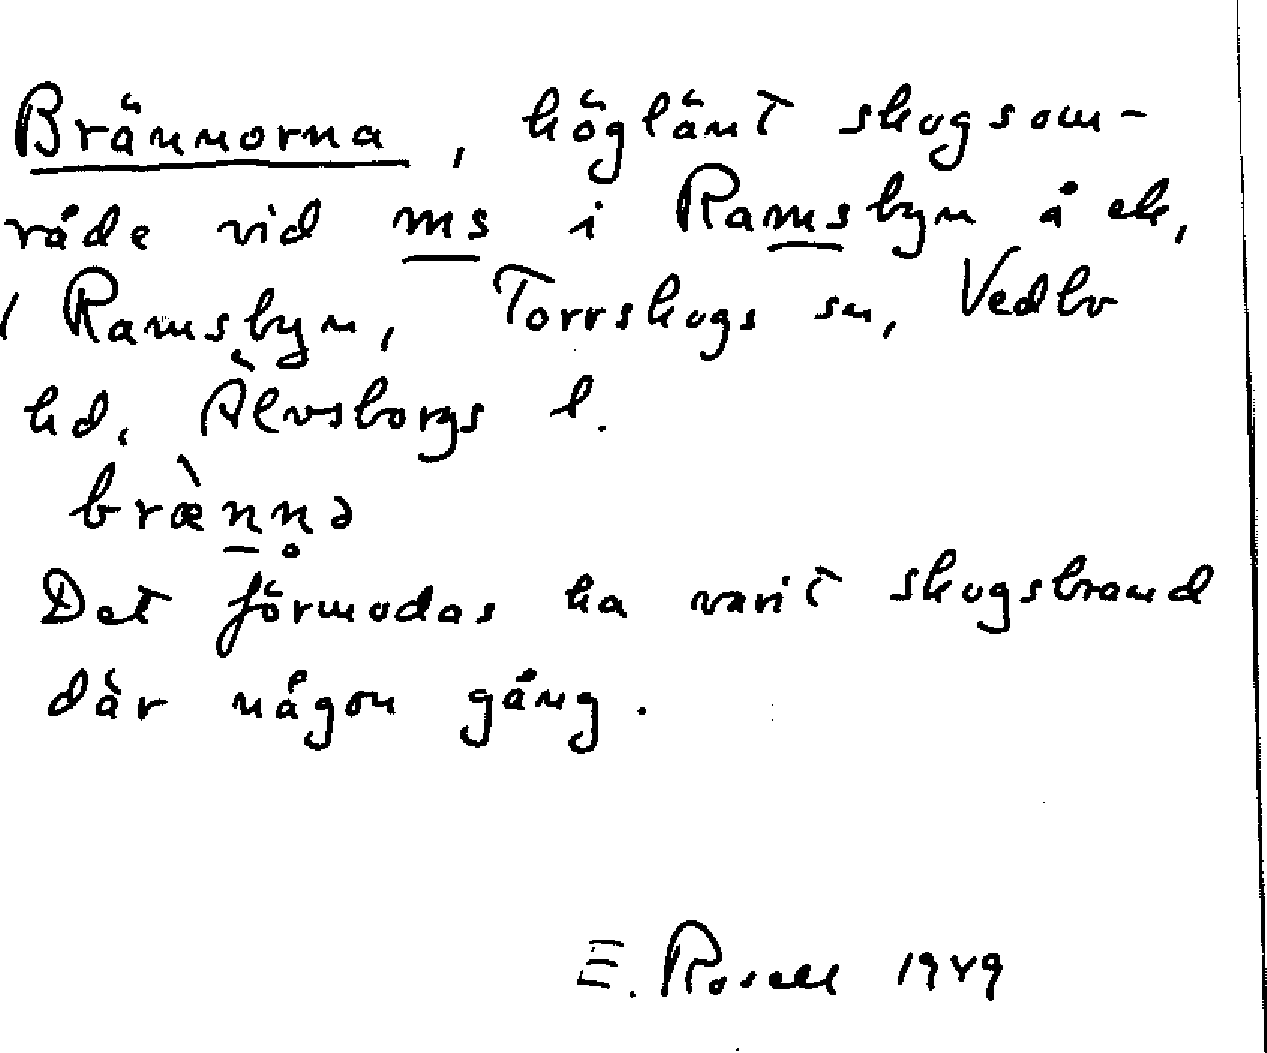 Brännorna, höglänt skogsom-
råde vid ms i Ramsbyn å ek,
1 Ramsbyn, Torrskogs sn, Vedbo
hd, Älvsborgs l.
bræ̀nn̥ə
Det förmodas ha varit skogsbrand
där någon gång.
E. Rosell 1949